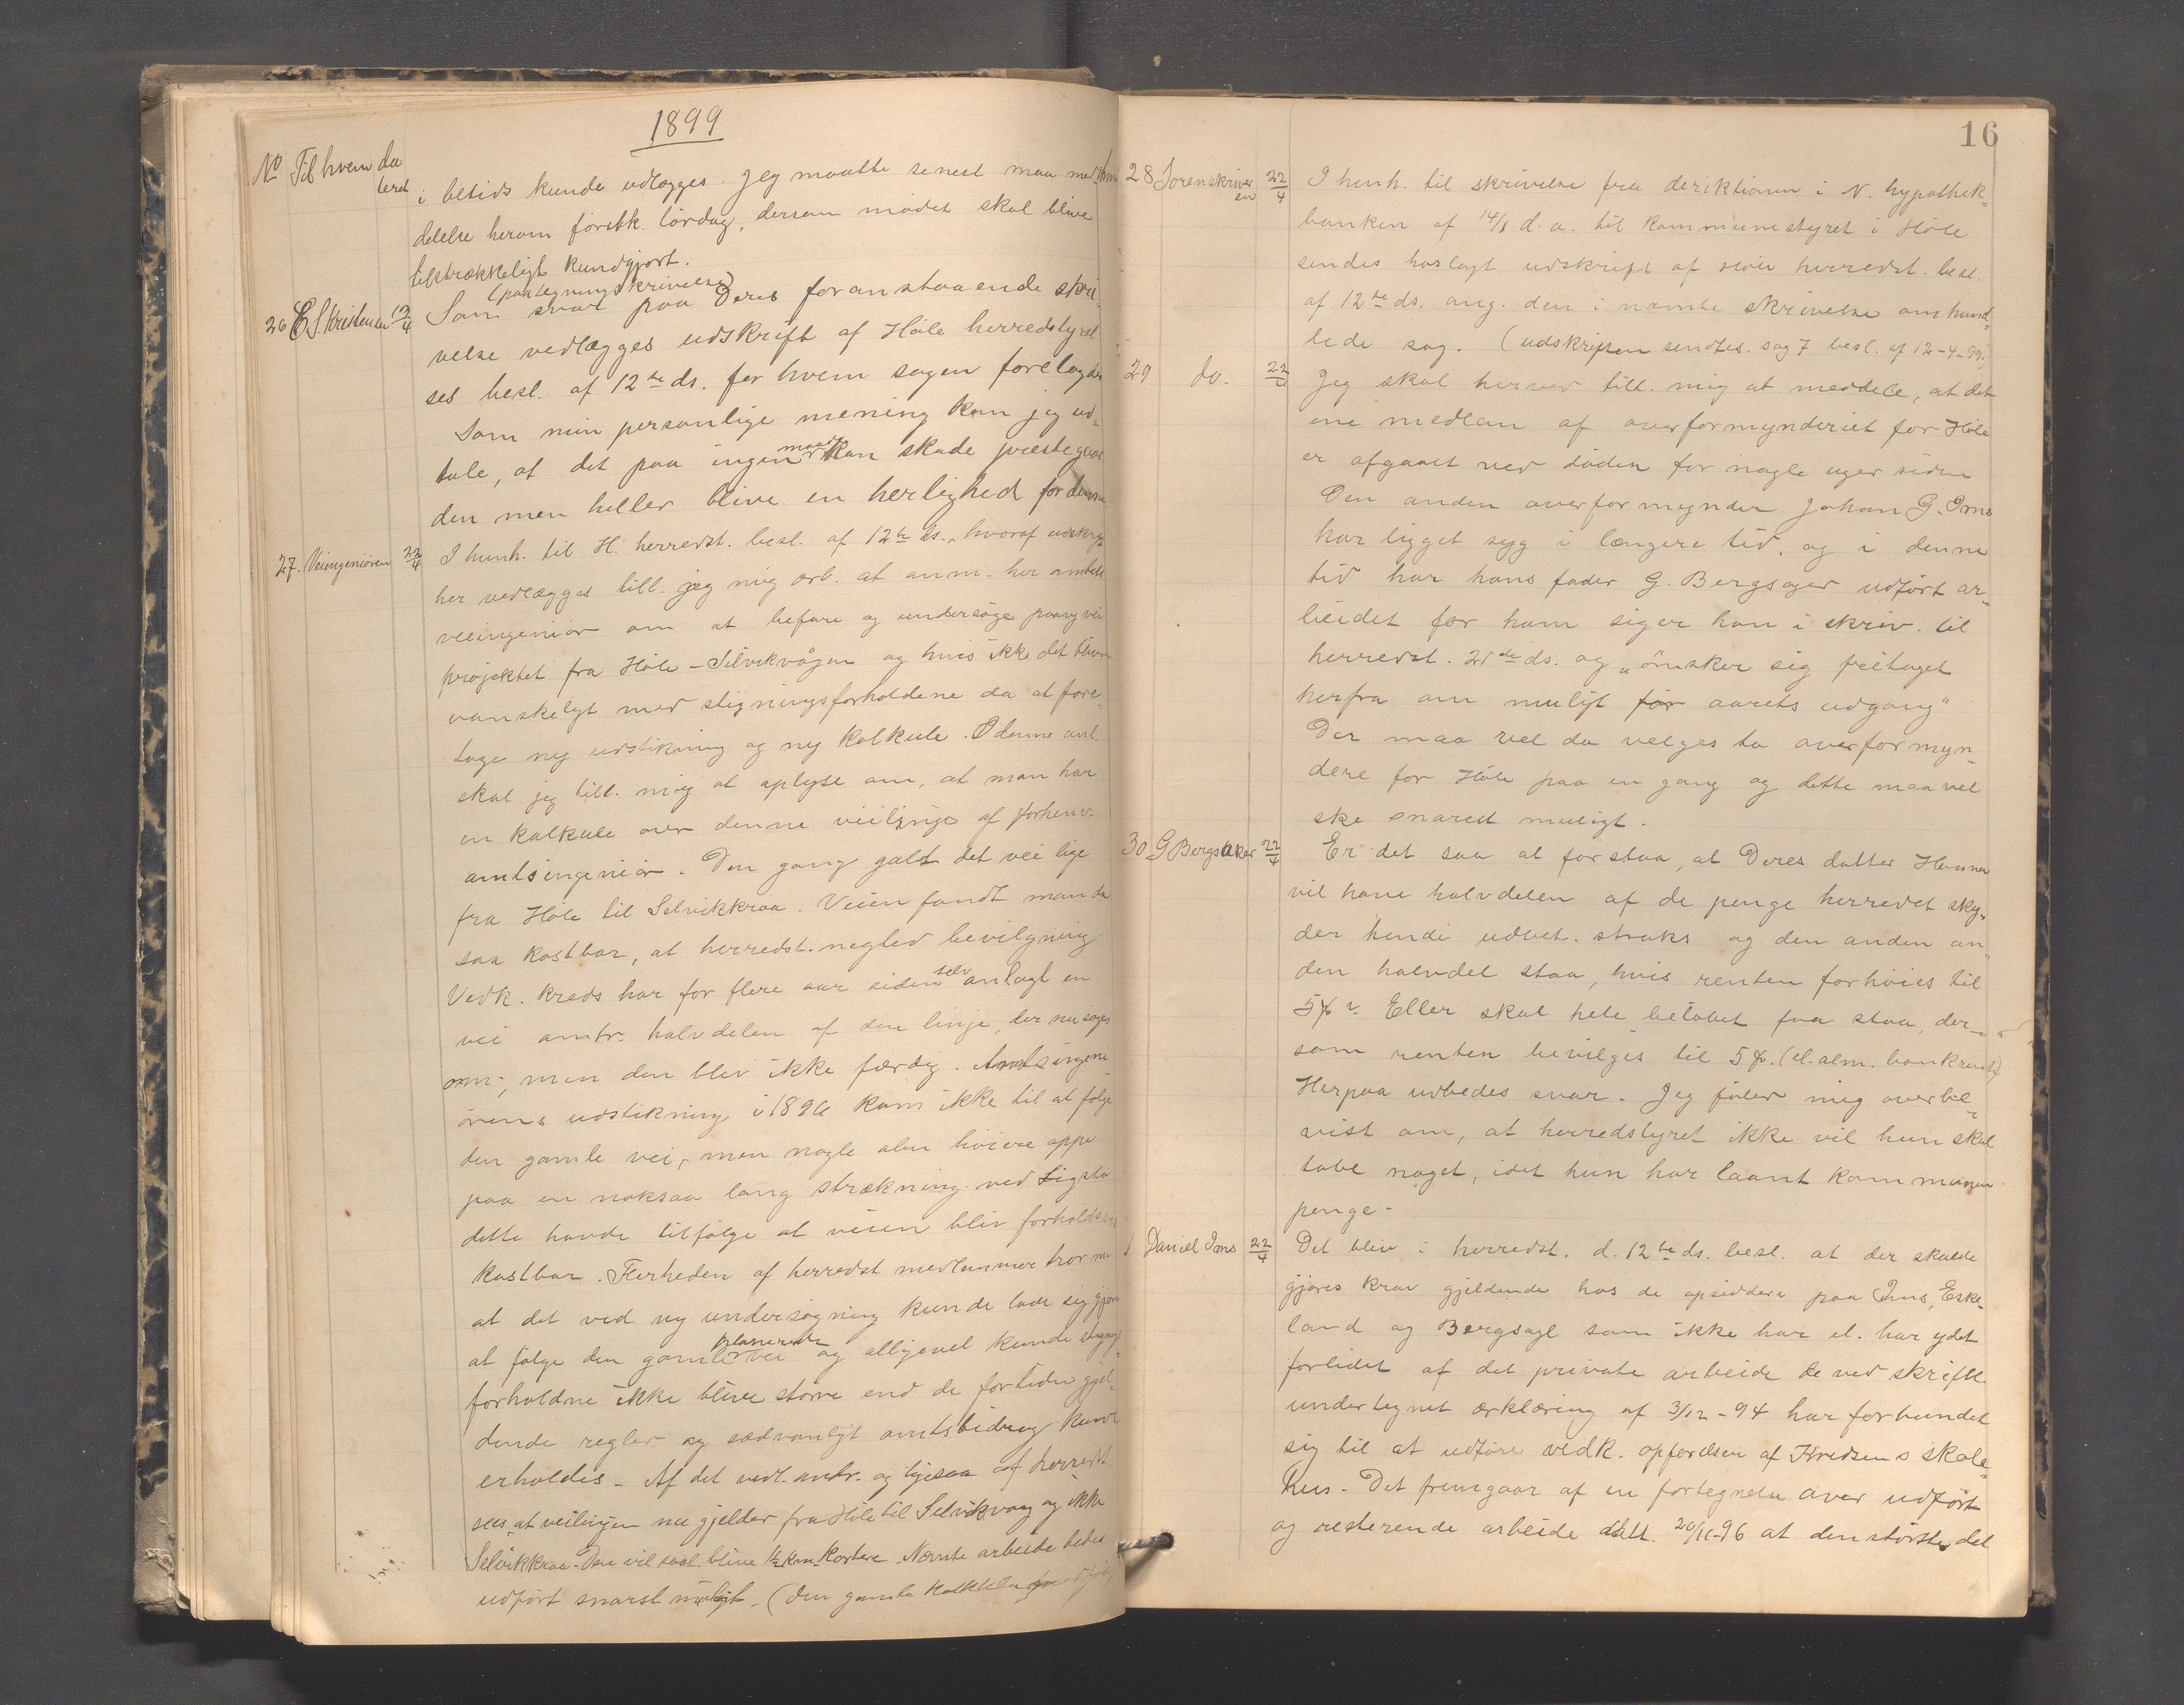 1899
No Til hvem da
teret
i betids kunde udlægges. Jeg maatte senest maa med
delelse herom förstk. lördag, dersom mödet skal blive
tilstrækkeligt kundgjort.
(paategningsskrivelse)
26 E. S. Kristensen 12/4 Som svar paa Deres foranstaaende skri-
velse vedlægges udskrift af Höle herredstyrel
ses besl. af 12te ds. for hvem sagen forelagdes
Som min personlige mening kan jeg ud-
tale, at det paa ingen maade kan skade præstegaar
den men heller blive en herlighed for denne.
27. Veiingeniören 22/4 I henh. til H. herredst. besl. af 12te ds., hvoraf udskrift
her vedlægges till. jeg mig ærb. at anm. hr amtets
veiingeniör om at befare og undersöge paany vei
projektet fra Höle - Selvikvågen og hvis ikke det bliver
vanskeligt med stigningsforholdene da at fore-
tage ny udstikning og ny kalkule. I denne anl.
skal jeg till. mig at oplyse om, at man har
en kalkule over denne veilinje af forhenv.
amtsingeniör. Den gang galdt det vei lige
fra Höle til Selvikkraa. Veien fandt man da
saa kostbar, at herredst. negted bevilgning
Vedk. kreds har for flere aar siden selv anlagt en
vei omtr. halvdelen af den linje, der nu söges
om, men den blev ikke færdig. Amtsingeni
örens udstikning i 1896 kom ikke til at fölge
den gamle vei, men nogle alen höiere oppe
paa en noksaa lang strækning ved Ligsta
dette havde tilfölge at veien blev forholdsvis
kostbar. Flerheden af herredst medlemmer tror nu
at det ved ny undersögning kunde lade sig gjöre
at fölge den gamle planerede vei og alligevel kunde stignings-
forholdne ikke blive större end de fortiden gjel-
dende regler og sædvanligt amtsbidrag kunde
erholdes - Af det vedl. andr. og ligesaa af herredst.
sees at veilinjen nu gjelder fra Höle til Selvikvaag og ikke
Selvikkraa. Den vil saal. blive 1/2 km. kortere. Nævnte arbeide bedes
udfört snarst muligt. (den gamle kalkule
16
28 Sorenskriver
en 22/4 I henh. til skrivelse fra direktionen i N. hypothek-
banken af 14/1 d. a. til kommunestyret i Höle
sendes hoslagt udskrift af Höle herredst. besl.
af 12te ds. ang. den i nævnte skrivelse omhand-
lede sag. (udskriften sendtes. sag 7 besl. af 12-4-99.)
29 do. 22/4 Jeg skal herved till. mig at meddele, at det
ene medlem af overformynderiet for Höle
er afgaaet ved döden for nogle uger siden
Den anden overformynder Johan G. Ims
har ligget syg i længere tid, og i denne
tid har hans fader G. Bergsager udfört ar-
beidet for ham siger han i skriv. til
herredst. 21de ds. og "önsker sig fritaget
herfra om muligt för aarets udgang"
Der maa vel da velges to overformyn-
dere for Höle paa en gang og dette maa vel
ske snarest muligt.
30 G Bergsaker 22/4 Er det saa at forstaa, at Deres datter Hanna
vil have halvdelen af de penge herredet sky-
der hende udbet. straks og den anden an-
den halvdel staa, hvis renten forhöies til
5%? Eller skal hele belöbet faa staa, der-
som renten bevilges til 5%. (el. alm. bankrente)
Herpaa udbedes svar. Jeg föler mig overbe-
vist om, at herredstyret ikke vil hun skal
tabe noget, idet hun har laant kommunen
penge.
1 Daniel Ims 22/4 Det blev i herredst. d. 12te ds. besl. at der skulde
gjöres krav gjeldende hos de opsiddere paa Ims, Eske-
land og Bergsagl som ikke har el. har ydet
forlidet af det private arbeide de ved skriftl.
undertegnet erklæring af 3/12-94 har forbundet
sig til at udföre vedk. opförelsen af Kredsens skole-
hus. Det fremgaar af en fortegnelse over udfört
og resterende arbeide datt. 20/11-96 at den störste del